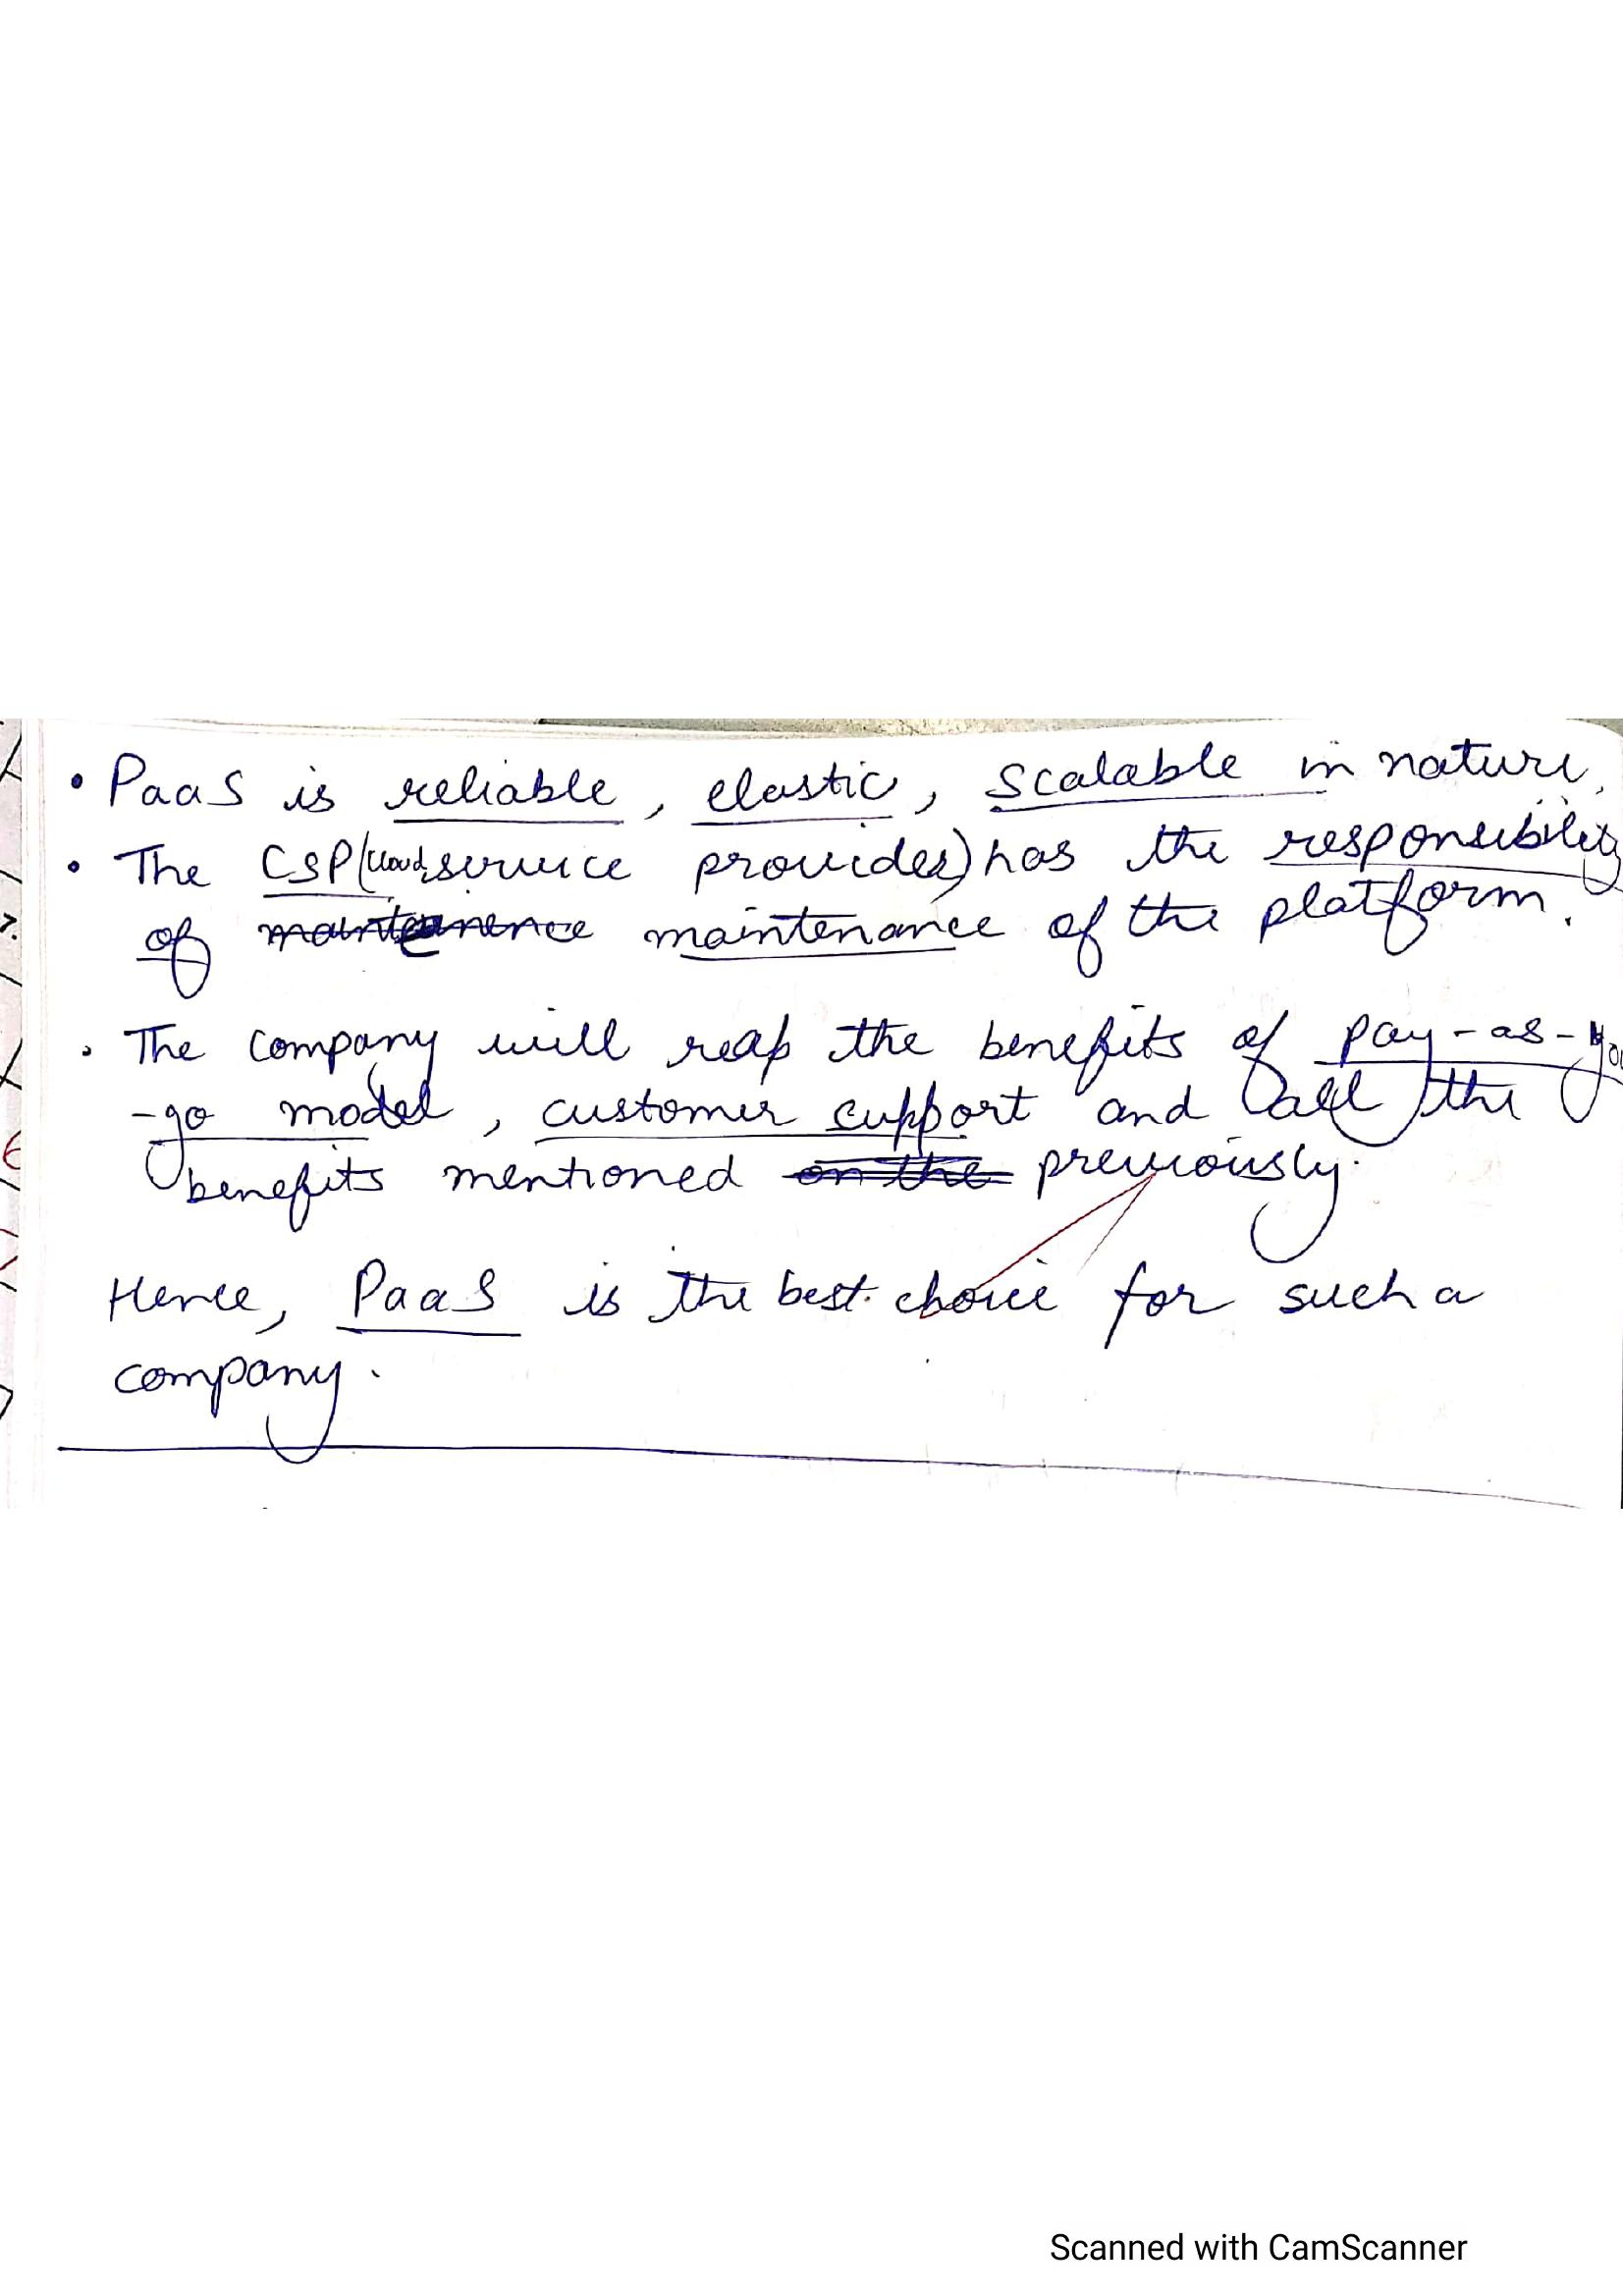 • PaaS is reliable, elastic, scalable in nature.
• The CSP (cloud service provider) has the responsibility
of maintenence maintenance of the platform.
• The company will reap the benefits of pay-as-you
-go model, customer support and all the
benefits mentioned on the previously.
Hence, PaaS is the best choice for such a
company.
Scanned with CamScanner